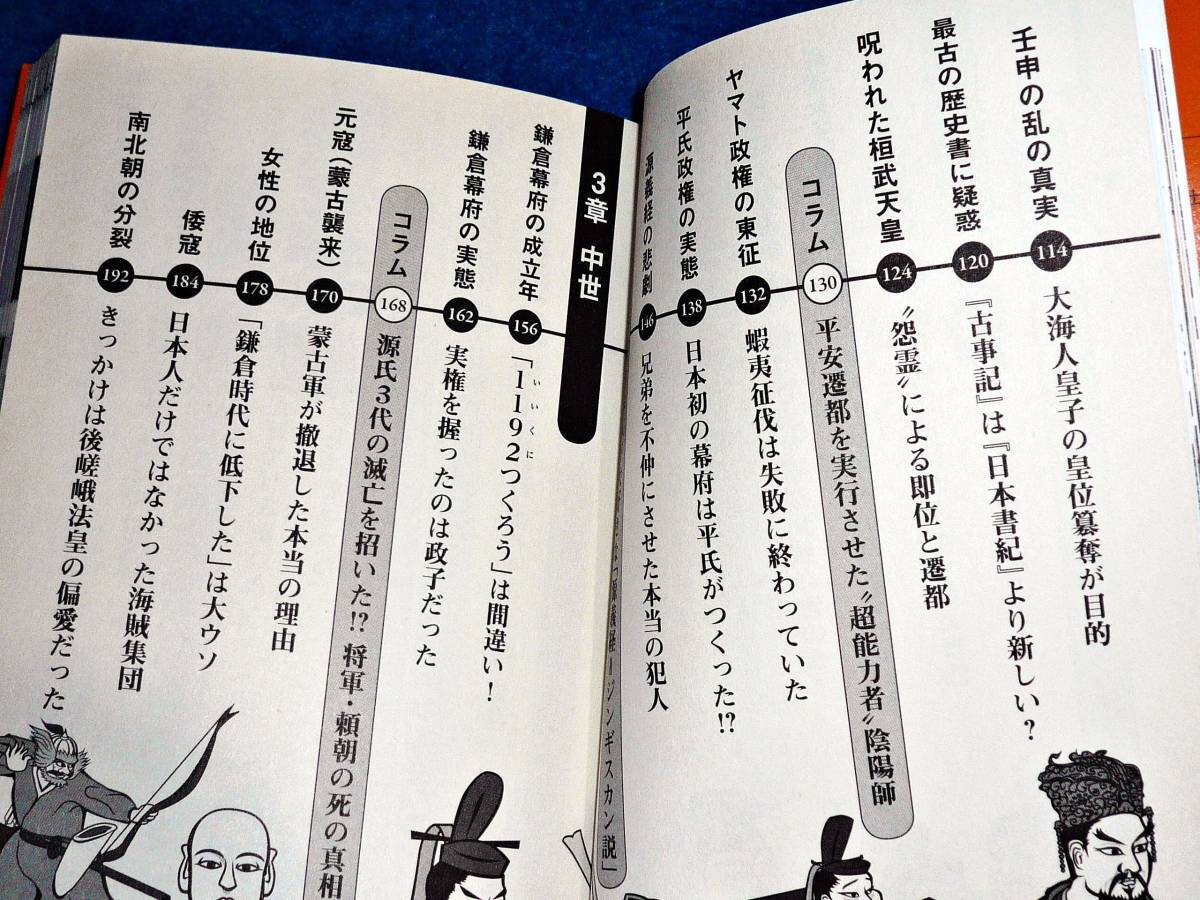 壬申の乱の真実 114 大海人皇子の皇位簒奪が目的
最古の歴史書に疑惑 120 『古事記』は『日本書紀』より新しい?
呪われた桓武天皇 124 〝怨霊〟による即位と遷都
コラム 130 平安遷都を実行させた〝超能力者〟陰陽師
ヤマト政権の東征 132 蝦夷征伐は失敗に終わっていた
平氏政権の実態 138 日本初の幕府は平氏がつくった!?
源義経の悲劇 146 兄弟を不仲にさせた本当の犯人
「源義経=ジンギスカン説」
3章 中世
鎌倉幕府の成立年 156 「1192つくろう」は間違い!
いいくに
鎌倉幕府の実態 162 実権を握ったのは政子だった
コラム 168 源氏3代の滅亡を招いた!? 将軍・頼朝の死の真相
元寇(蒙古襲来) 170 蒙古軍が撤退した本当の理由
女性の地位 178 「鎌倉時代に低下した」は大ウソ
倭寇 184 日本人だけではなかった海賊集団
南北朝の分裂 192 きっかけは後嵯峨法皇の偏愛だった